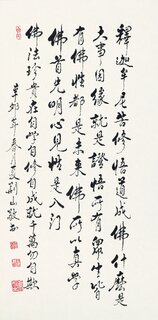 釋迦牟尼苦修悟道成佛什麼是
大事因緣就是證悟所有眾生皆
有佛性都是未來佛所以真學
佛首先明心見性是入門
佛法珍貴在自悟自修自成就千萬勿自欺
辛卯年春月